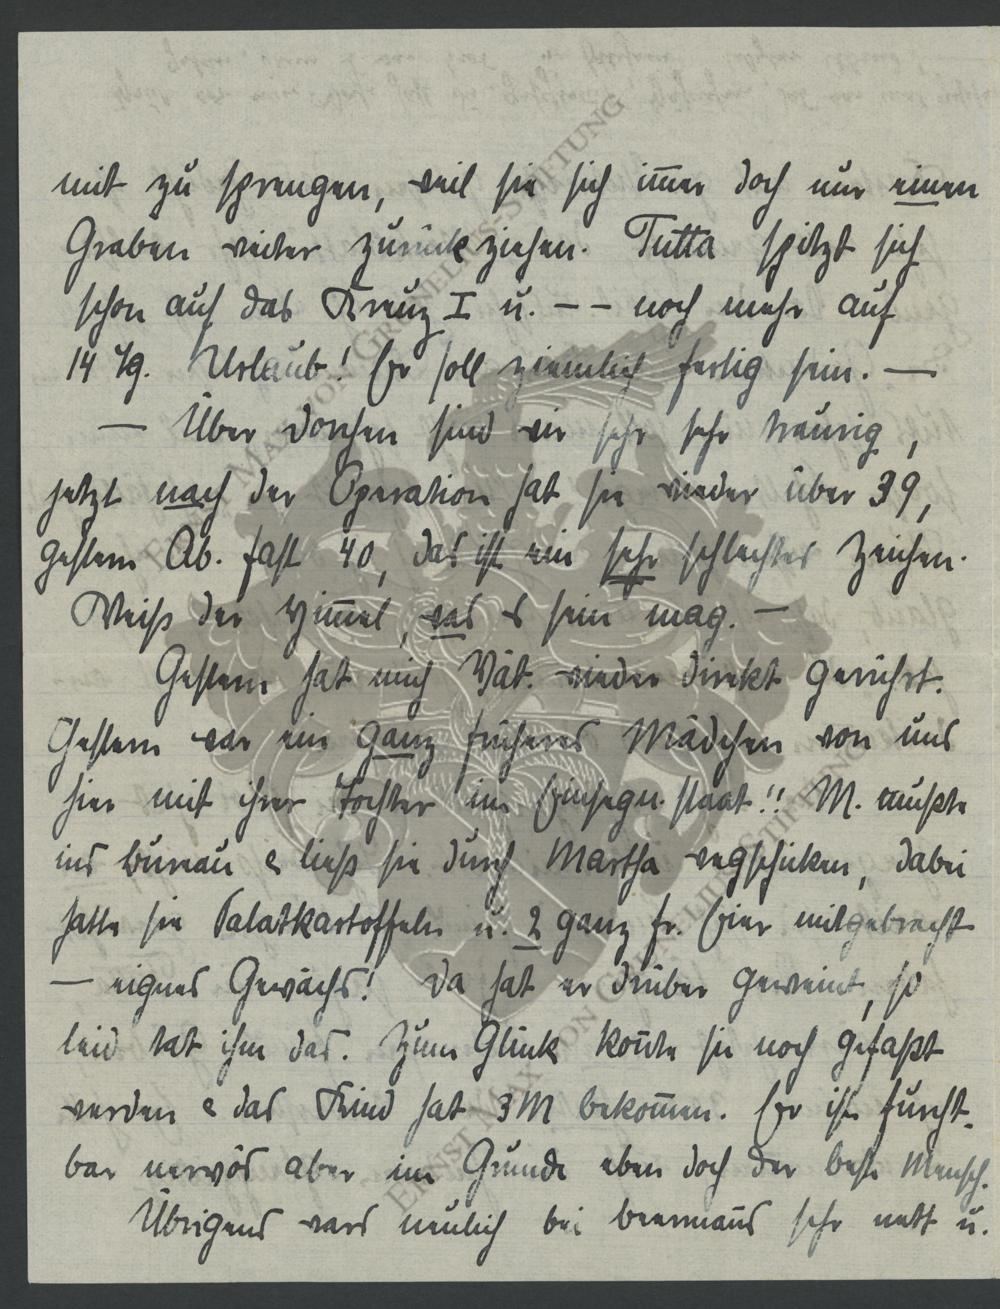 mit zu sprengen, weil sie sich im̅er doch nur einen
Graben weiter zurück ziehen. Tutta spitzt sich
schon auf das Kreuz I u. – – noch mehr auf
14 Tg. Urlaub! Er soll ziemlich fertig sein. —
— Über Dorchen sind wir sehr sehr traurig,
jetzt nach der Operation hat sie wieder über 39,
gestern Ab. fast 40, das ist ein sehr schlechtes Zeichen.
Weiß der Him̅el, was es sein mag. —
Gestern hat mich Vät. wieder direkt gerührt.
Gestern war ein ganz früheres Mädchen von uns
hier mit ihrer Tochter im Einsegn. staat!! M. mußte
ins Bureau & ließ sie durch Martha wegschicken, dabei
hatte sie Salatkartoffeln u. 2 ganz fr. Eier mitgebracht
— eignes Gewächs! Da hat er drüber geweint, so
leid tat ihm das. Zum Glück kon̅te sie noch gefaßt
werden & das Kind hat 3 M bekom̅en. Er ist furcht-
bar nervös aber im Grunde eben doch der beste Mensch.
Übrigens wars neulich bei Beermanns sehr nett u.
ERNST MAX VON GRUNELIUS-STIFTUNG
ERNST MAX VON GRUNELIUS-STIFTUNG